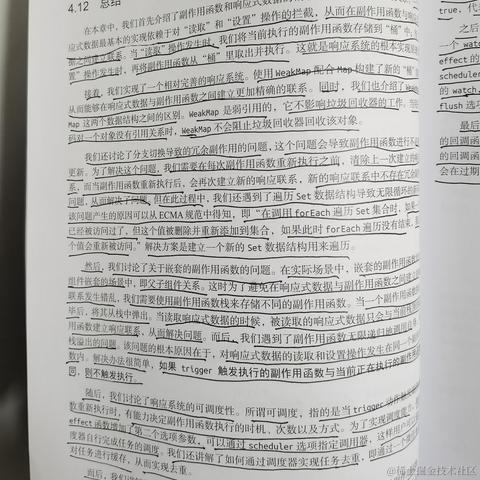 4.12 总结
在本章中，我们首先介绍了副作用函数和响应式数据的
应式数据最基本的实现依赖于对“读取”和“设置”操作的拦截，从而在副作用函数与响
据之间建立联系。当“读取”操作发生时，我们将当前执行的副作用函数存储到“桶”中；
置”操作发生时，再将副作用函数从“桶”里取出并执行。这就是响应系统的根本实现原
接着，我们实现了一个相对完善的响应系统。使用 WeakMap 配合 Map 构建了新的“桶”
从而能够在响应式数据与副作用函数之间建立更加精确的联系。同时，我们也介绍了 WeakMap
Map 这两个数据结构之间的区别。WeakMap 是弱引用的，它不影响垃圾回收器的工作。当
码对一个对象没有引用关系时，WeakMap 不会阻止垃圾回收器回收该对象。
我们还讨论了分支切换导致的冗余副作用的问题，这个问题会导致副作用函数进行不
更新。为了解决这个问题，我们需要在每次副作用函数重新执行之前，清除上一次建立的
系，而当副作用函数重新执行后，会再次建立新的响应联系，新的响应联系中不存在冗余
问题，从而解决了问题。但在此过程中，我们还遇到了遍历 Set 数据结构导致无限循环的新
该问题产生的原因可以从 ECMA 规范中得知，即“在调用 forEach 遍历 Set 集合时，如果一
已经被访问过了，但这个值被删除并重新添加到集合，如果此时 forEach 遍历没有结束，
个值会重新被访问。”解决方案是建立一个新的 Set 数据结构用来遍历。
然后，我们讨论了关于嵌套的副作用函数的问题。在实际场景中，嵌套的副作用函数
组件嵌套的场景中，即父子组件关系。这时为了避免在响应式数据与副作用函数之间建立的
联系发生错乱，我们需要使用副作用函数栈来存储不同的副作用函数。当一个副作用函数
毕后，将其从栈中弹出。当读取响应式数据的时候，被读取的响应式数据只会与当前栈
用函数建立响应联系，从而解决问题。而后，我们遇到了副作用函数无限递归地调用自身，
栈溢出的问题。该问题的根本原因在于，对响应式数据的读取和设置操作发生在同一个副
数内。解决办法很简单，如果 trigger 触发执行的副作用函数与当前正在执行的副作用
同，则不触发执行。
随后，我们讨论了响应系统的可调度性。所谓可调度，指的是当 trigger 动作触
数重新执行时，有能力决定副作用函数执行的时机、次数以及方式。为了实现调度能力，
effect 函数增加了第二个选项参数，可以通过 scheduler 选项指定调用器，这样用户可以
度器自行完成任务的调度。我们还讲解了如何通过调度器实现任务去重，即通过一个微
对任务进行缓存，从而实现去重。
而后，我们
true，代
一个 wat
effect 的
scheduler
的 watch，
flush 选
最后
的回调函
的回调函
会在过期
@稀土掘金技术社区